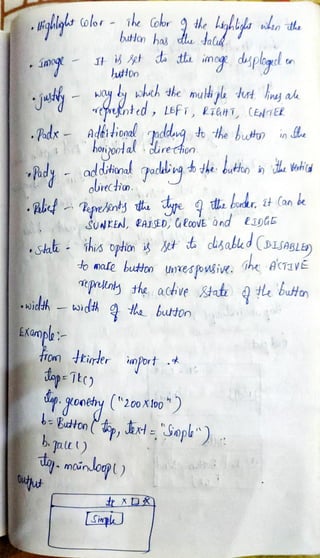 • Highlight color - The Color of the highlight when the
button has the focus
• Image - It is set to the image displayed on
button
• justify - way by which the multiple text lines are
represented, LEFT, RIGHT, CENTER
• Padx - Additional padding to the button in the
horizontal direction.
• Pady - additional padding to the button in the vertical
direction.
• Relief - Represents the type of the border. It Can be
SUNKEN, RAISED, GROOVE and RIDGE
• state - this option is set to disabled (DISABLED)
to make button unresponsive. The ACTIVE
represents the active state of the button
• width - width of the button
Example:-
from tkinter import .*
top = Tk()
top.geometry ("200x100")
b = Button (top, text = "Simple")
b.pack()
top.mainloop()
output
tk X
Simple